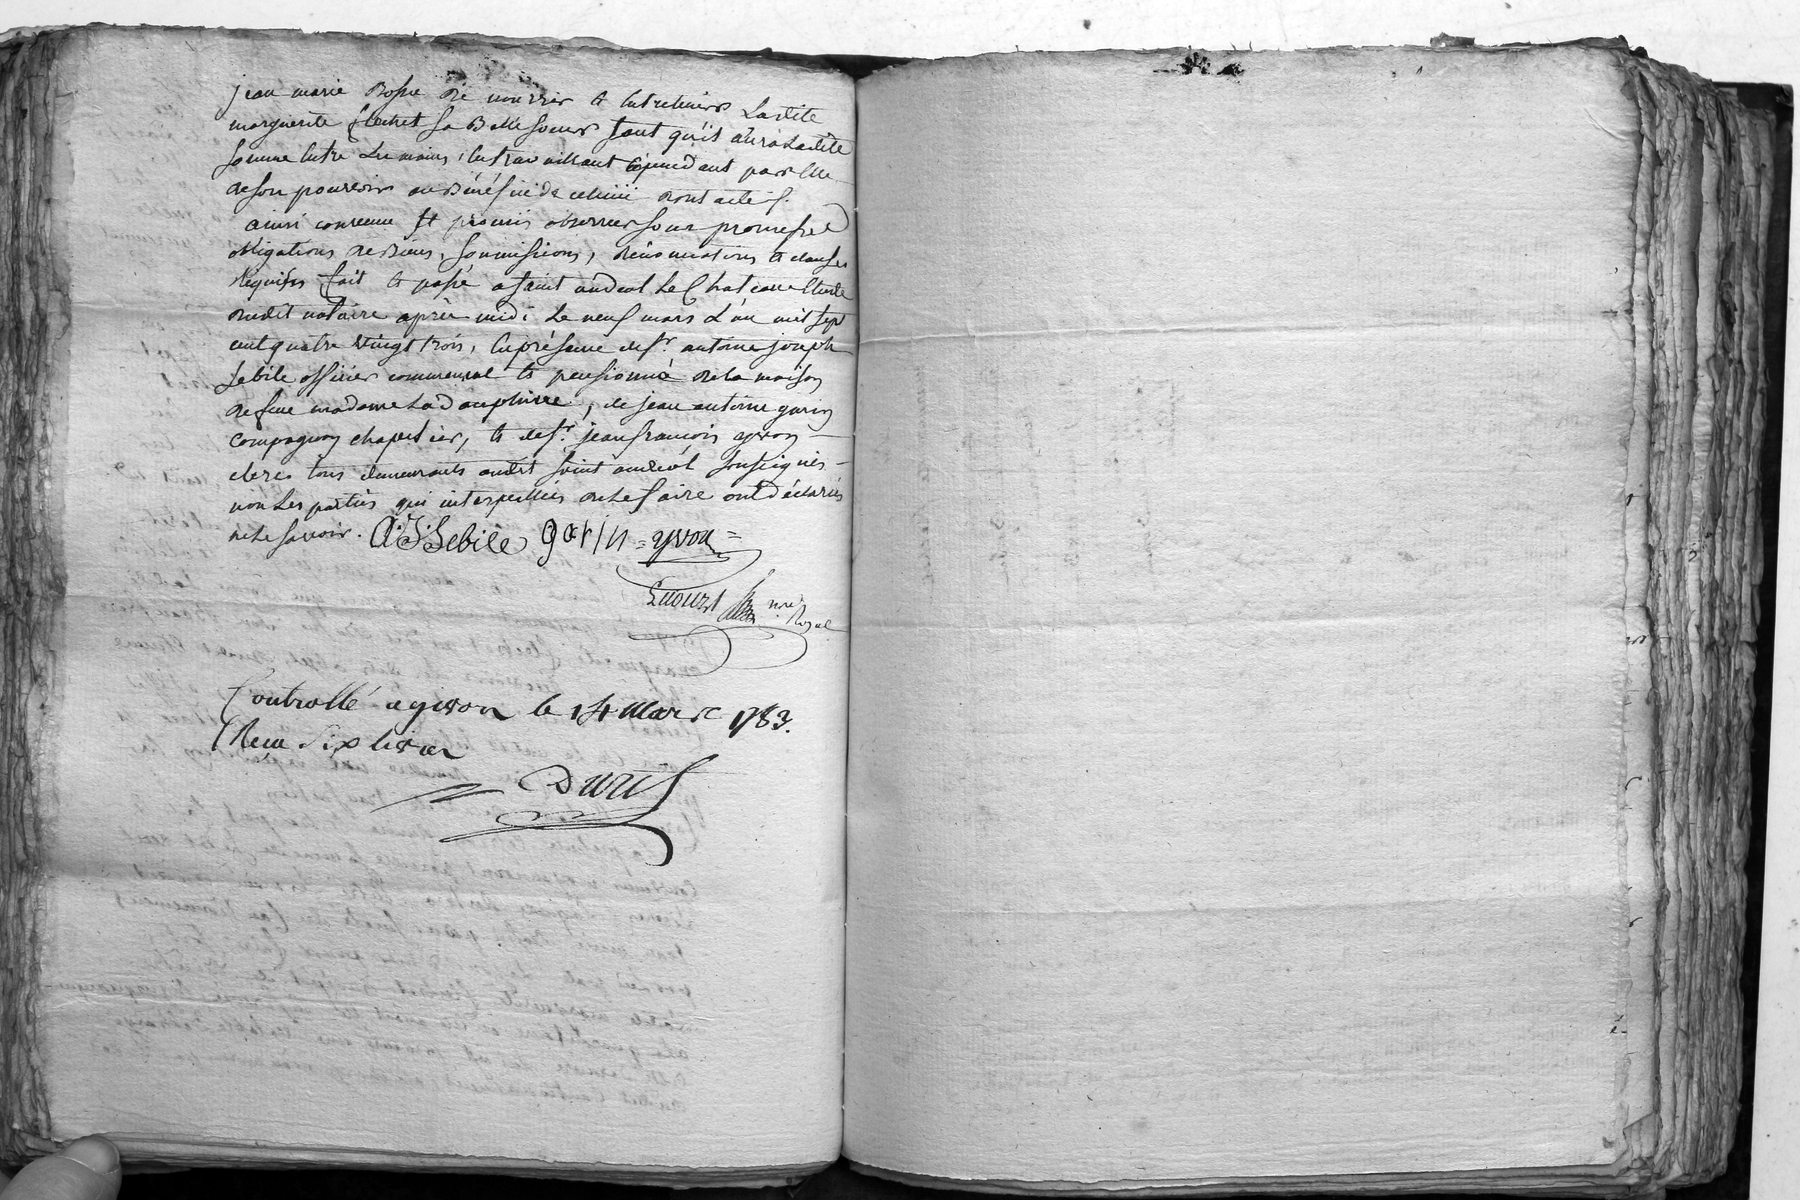 jean marie de nourrir et entretenir Ladite
marguerite flechet sa Belle soeur tant qu'il aura Ladite
somme entre les mains, en travaillant cependant par elle
de son pouvoir au Bénéfice de celuiii dont acte
ainsi convenu et promis observer sous promesse
obligations de Biens, soumissions, rénonciations et clauses
Réquises fait et passé a saint andeol Le Chateau Etude
dudit notaire après midi Le neuf mars L'an mil sept
cent quatre vingt trois, en présence de sr. antoine joseph
Lebile officier commensal et pensionné de la maison
de feue madame La dauphinee, de jean antoine garin
compagnon chapelier, et de sr. jean francois yvon
clerc tous demeurants audit saint andeol soussignés
non Les parties qui interpellées de Le faire ont déclarées
ne Le savoir. A: J: Lebile garin = yvon =
nre. Royal
Controllé a givors le 14 Mars 1783.
Recu six livres